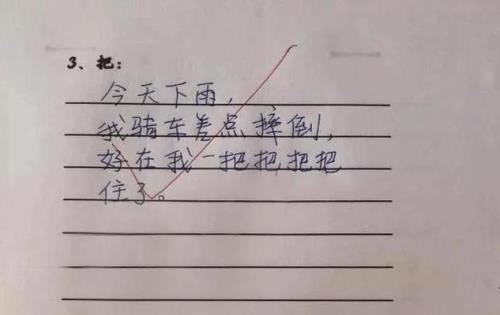 3、把：
今天下雨，
我骑车差点摔倒，
好在我一把把，把把
住了。